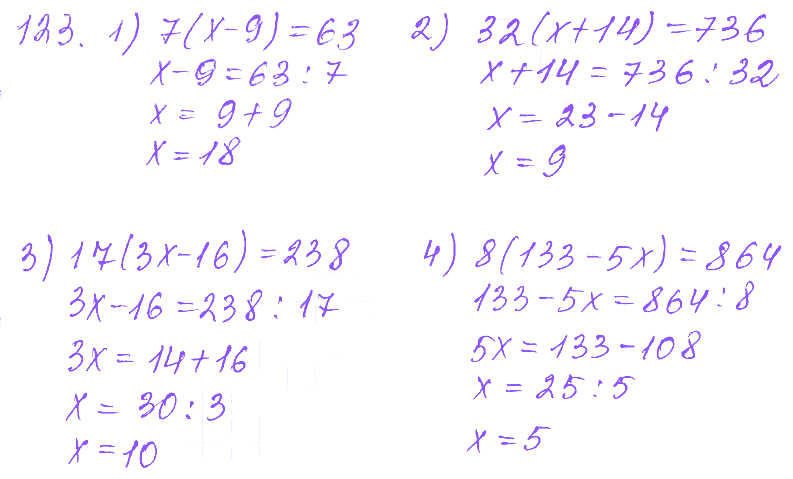 123. 1) 7(x-9)=63
x-9=63:7
x= 9+9
x=18
2) 32(x+14)=736
x+14=736:32
x=23-14
x=9
3) 17(3x-16)=238
3x-16=238:17
3x=14+16
x=30:3
x=10
4) 8(133-5x)=864
133-5x=864:8
5x=133-108
x=25:5
x=5